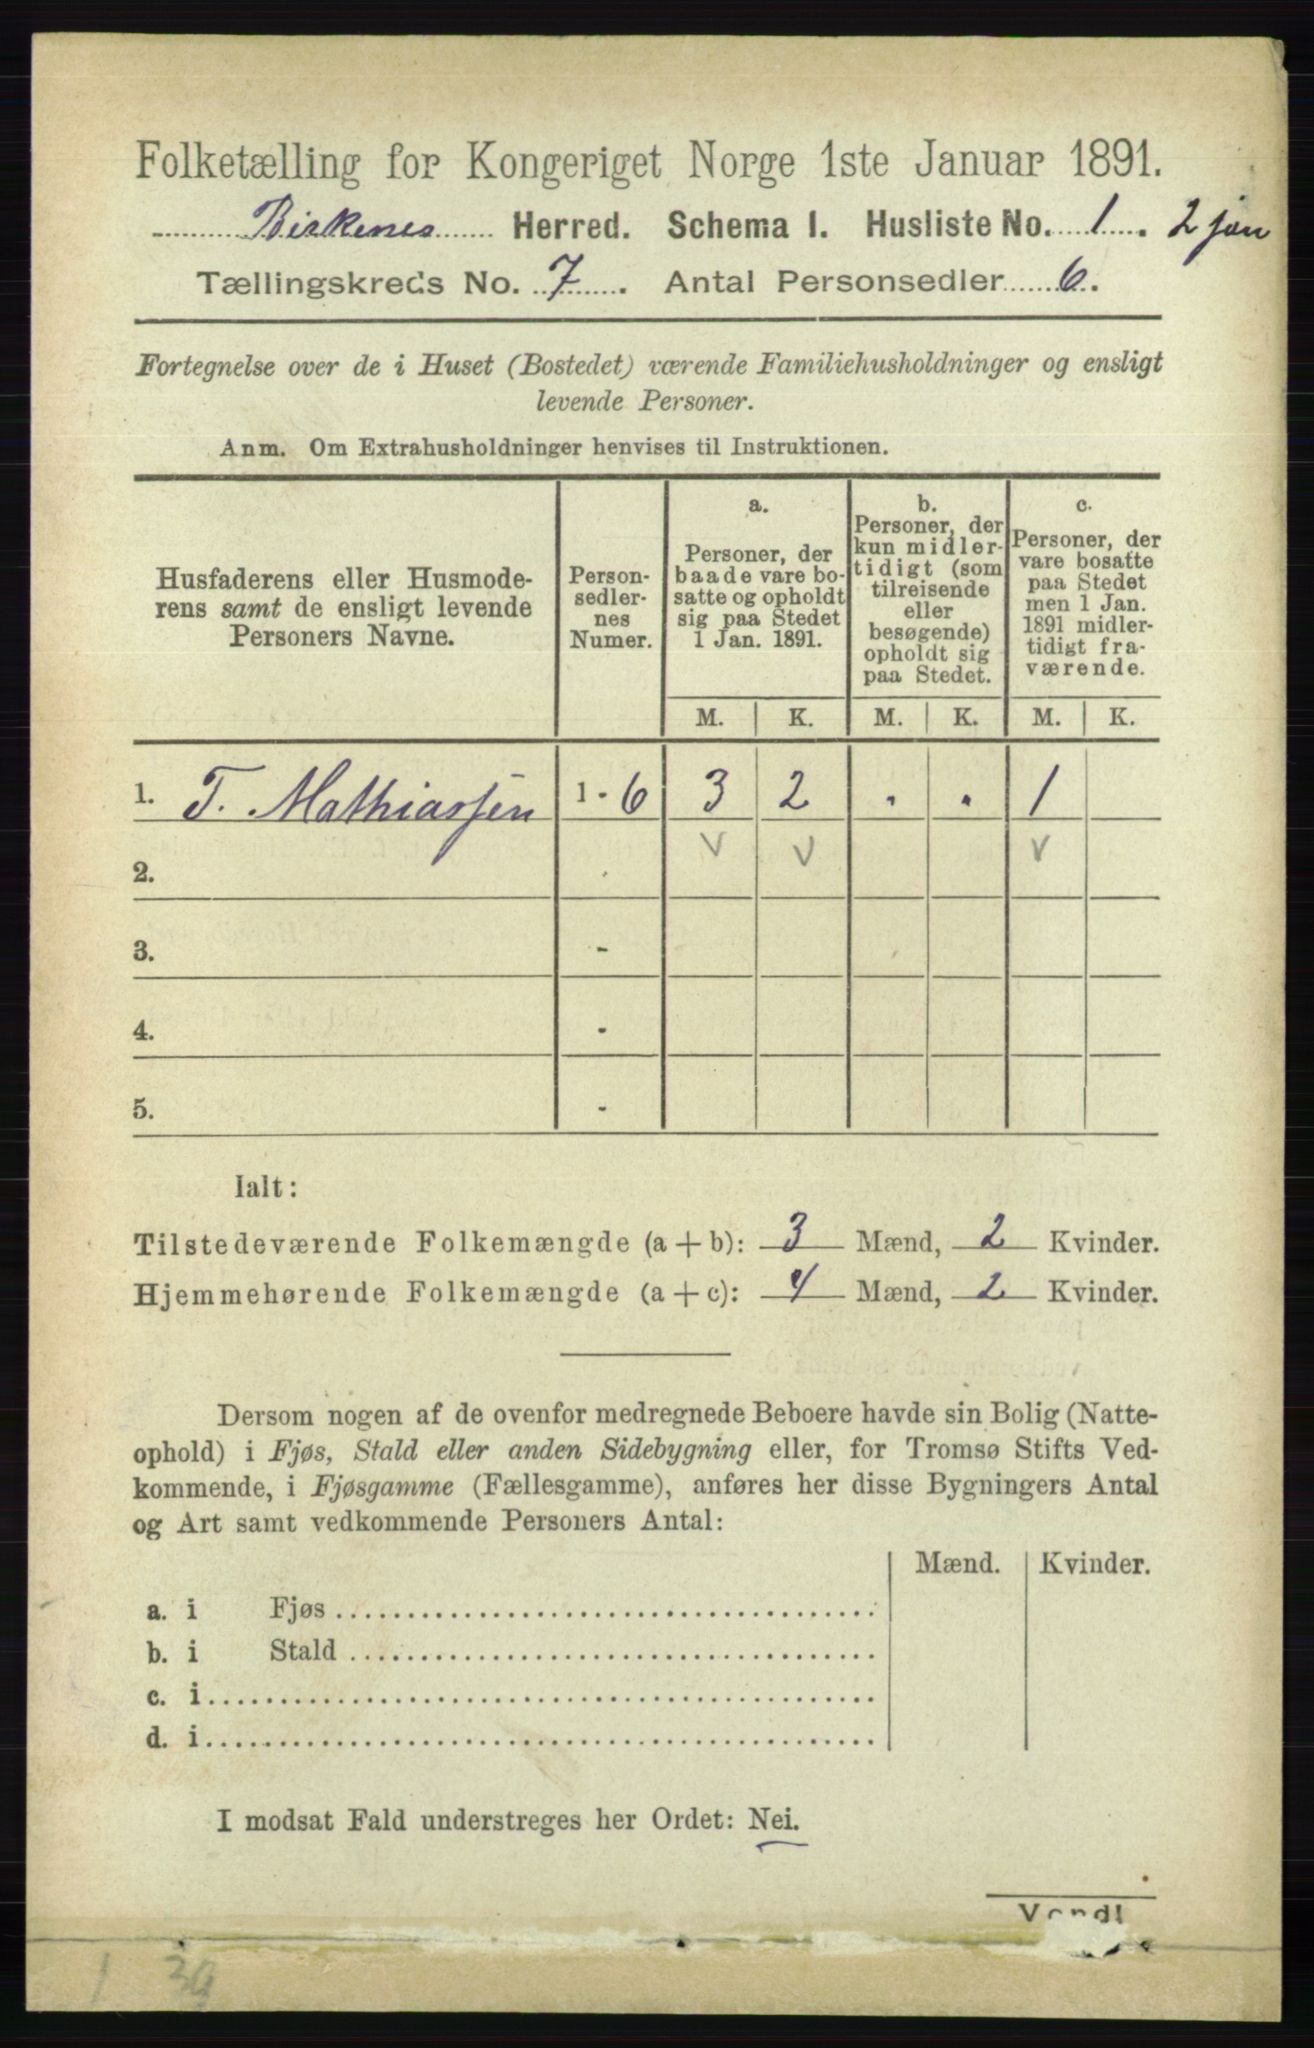 Folketælling for Kongeriget Norge 1ste Januar 1891.
Birkenes Herred. Schema I. Husliste No. 1. 2 jan
Tællingskreds No. 7. Antal Personsedler 6.
Fortegnelse over de i Huset (Bostedet) værende Familiehusholdninger og ensligt
levende Personer.
Anm. Om Extrahusholdninger henvises til Instruktionen.
Husfaderens eller Husmode-
rens samt de ensligt levende
Personers Navne.
Person-
sedler-
nes
Numer.
a.
Personer, der
baade vare bo-
satte og opholdt
sig paa Stedet
1 Jan. 1891.
b.
Personer, der
kun midler-
tidigt (som
tilreisende
eller
besøgende)
opholdt sig
paa Stedet.
c.
Personer, der
vare bosatte
paa Stedet
men 1 Jan.
1891 midler-
tidigt fra-
værende.
M. K. M. K. M. K.
1. T. Mathiassen 1 - 6 3 2 . . 1
2. v v v
3. -
4. -
5. -
Ialt:
Tilstedeværende Folkemængde (a + b): 3 Mænd, 2 Kvinder.
Hjemmehørende Folkemængde (a + c): 4 Mænd, 2 Kvinder.
Dersom nogen af de ovenfor medregnede Beboere havde sin Bolig (Natte-
ophold) i Fjøs, Stald eller anden Sidebygning eller, for Tromsø Stifts Ved-
kommende, i Fjøsgamme (Fællesgamme), anføres her disse Bygningers Antal
og Art samt vedkommende Personers Antal:
Mænd. Kvinder.
a. i Fjøs
b. i Stald
c. i
d. i
I modsat Fald understreges her Ordet: Nei.
Vend!
1 39